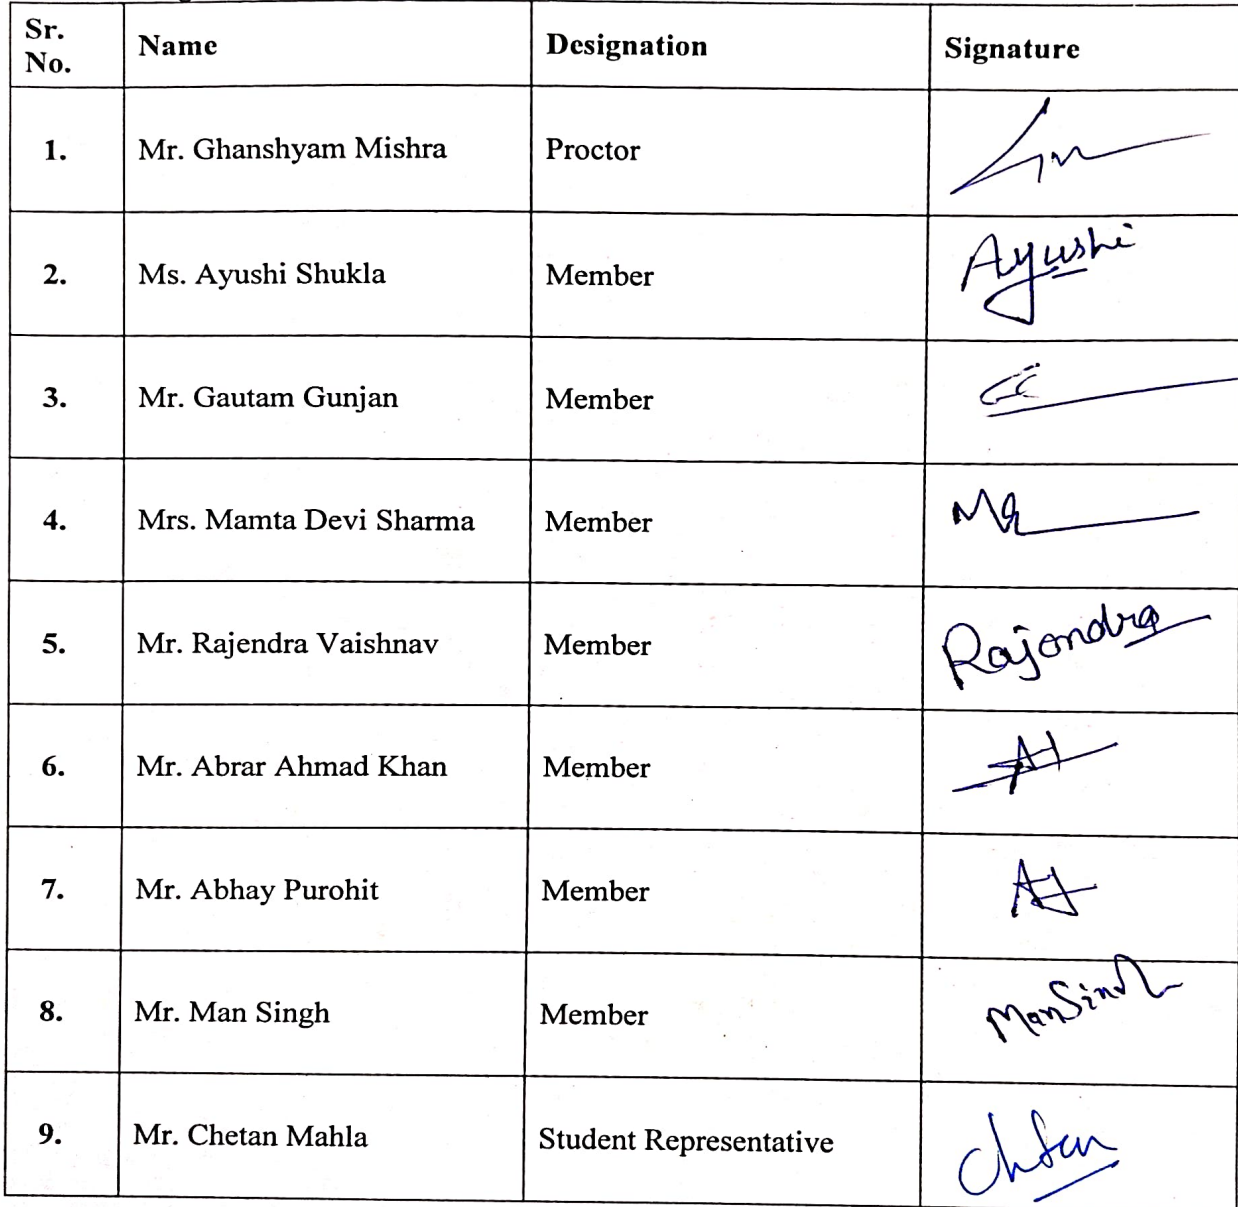 Sr. No. Name Designation Signature
1. Mr. Ghanshyam Mishra Proctor
2. Ms. Ayushi Shukla Member Ayushi
3. Mr. Gautam Gunjan Member
4. Mrs. Mamta Devi Sharma Member
5. Mr. Rajendra Vaishnav Member Rajendra
6. Mr. Abrar Ahmad Khan Member
7. Mr. Abhay Purohit Member
8. Mr. Man Singh Member ManSingh
9. Mr. Chetan Mahla Student Representative